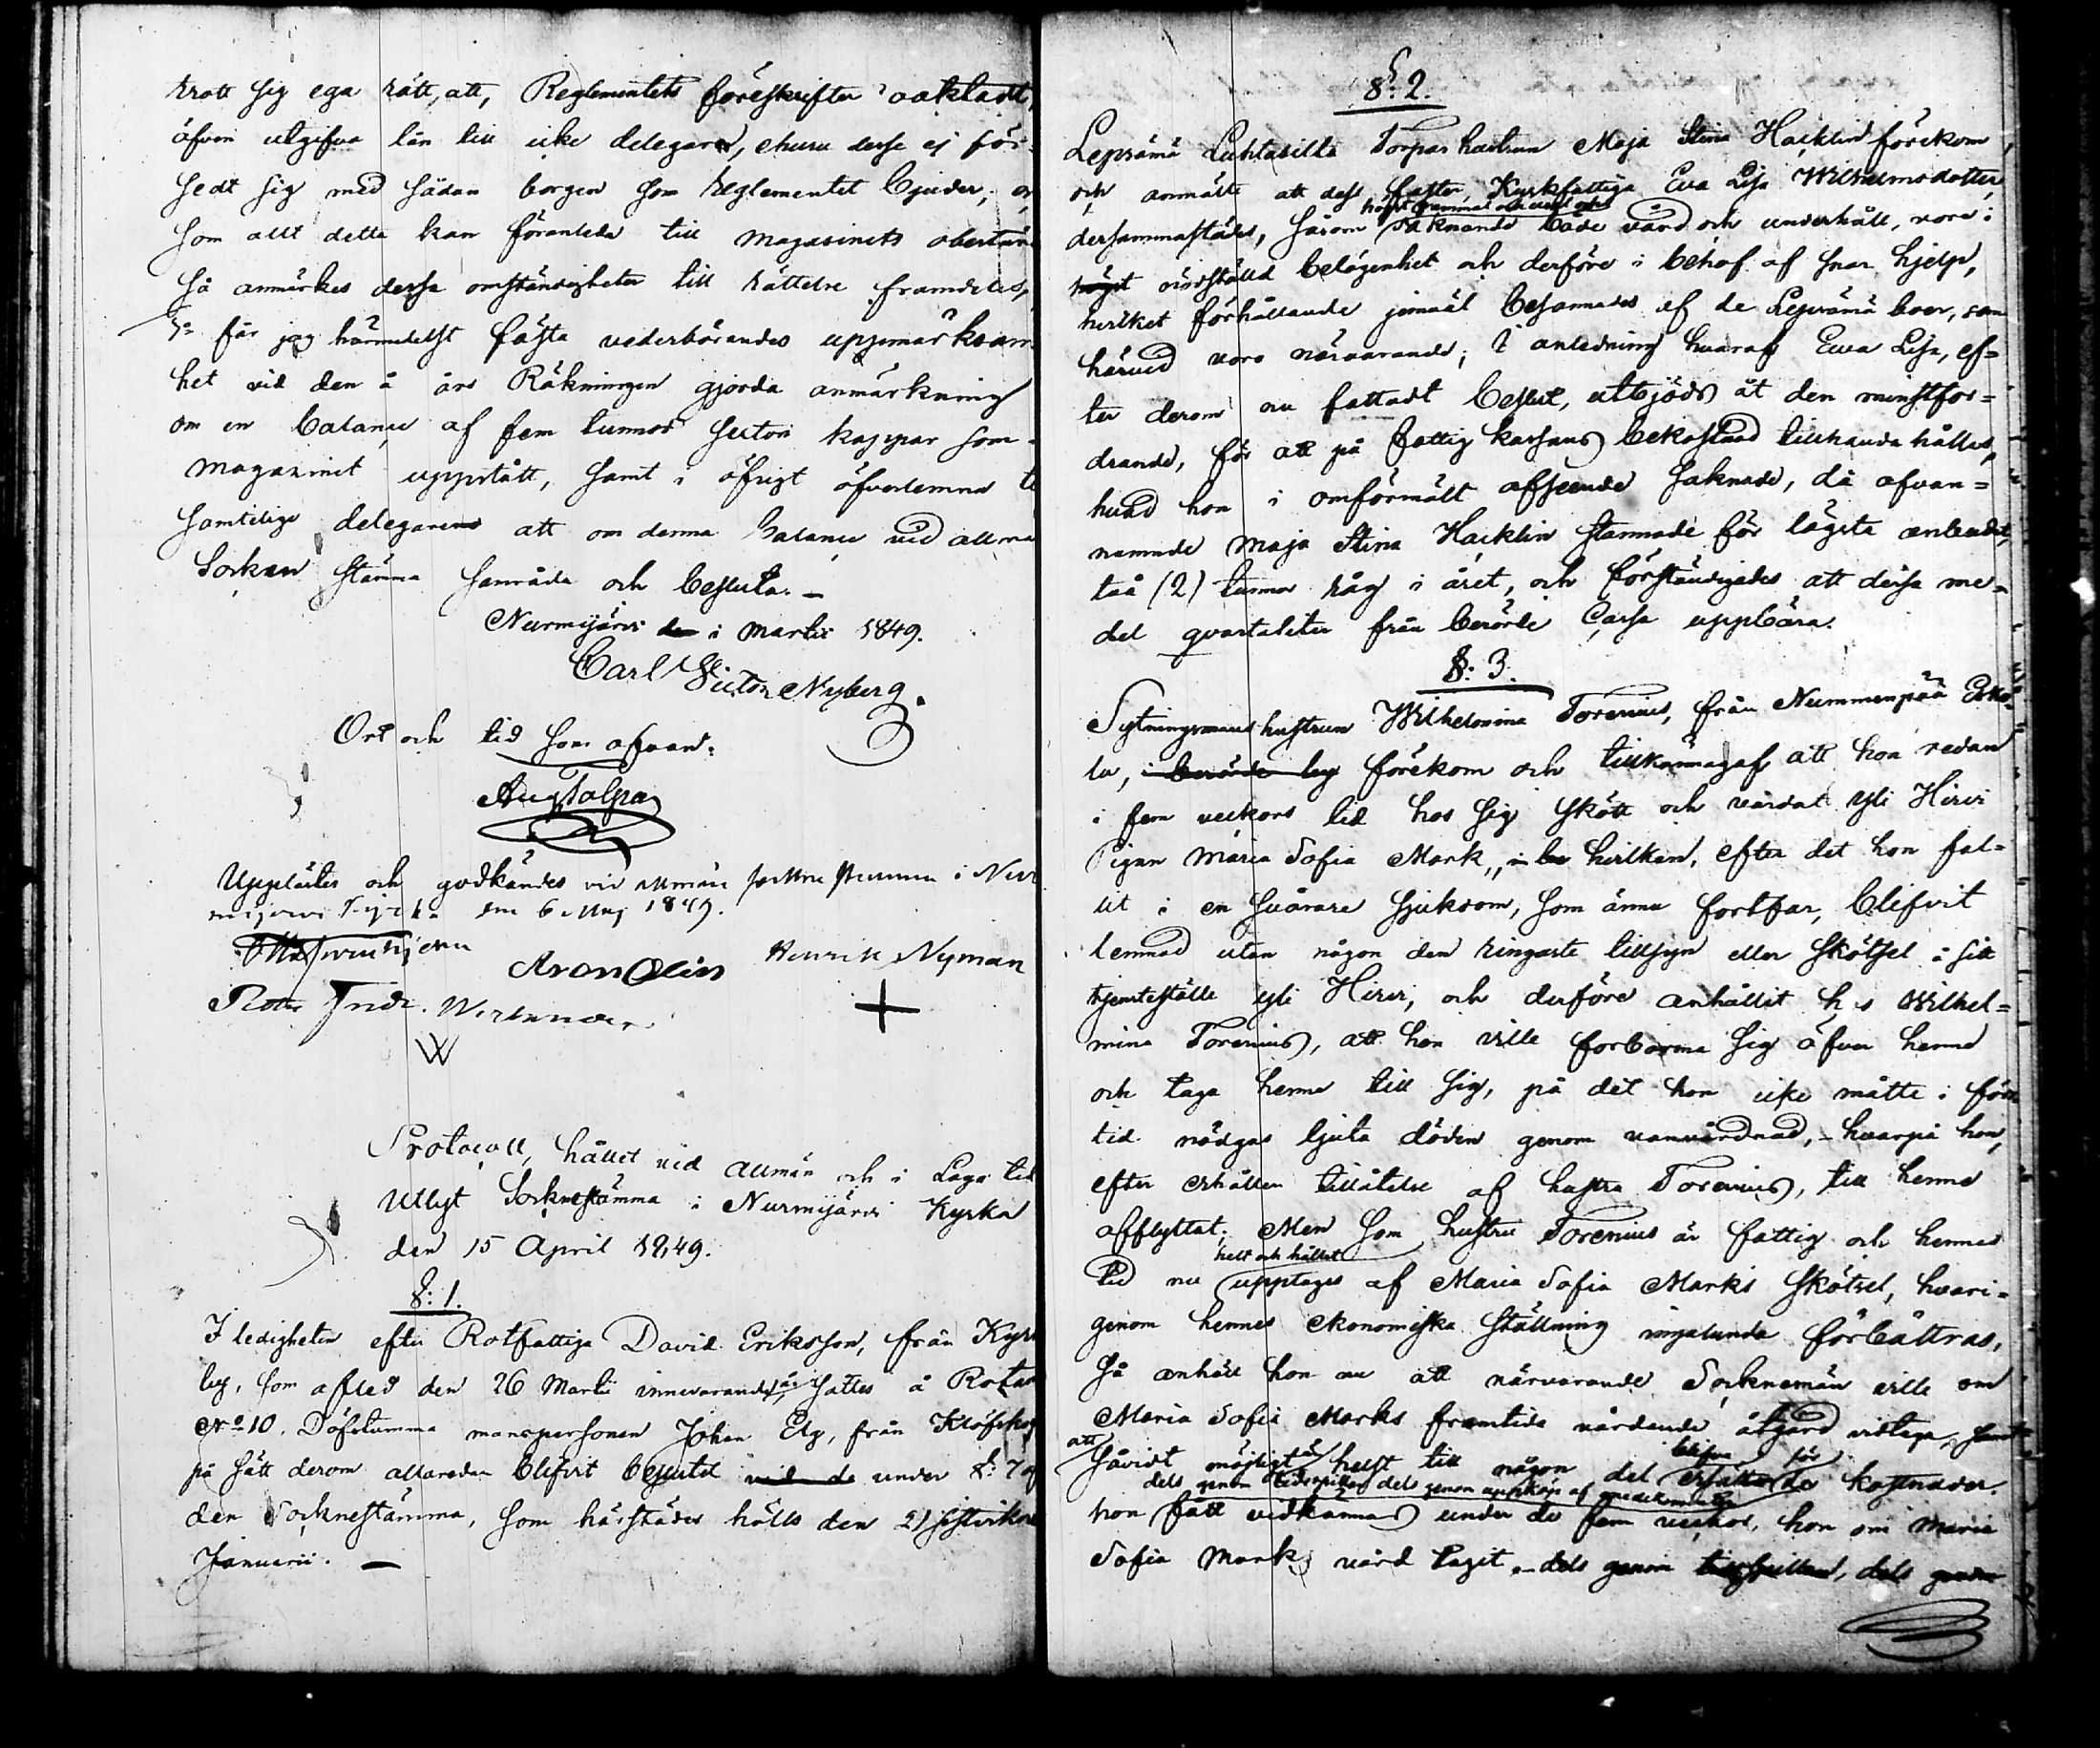 trott sig ega rätt, att, Reglementets föreskrifter oaktadt,
äfven utgifva lån till icke delegare, churu desse ej för-
sedt sig med sådan borgen som Reglementet bjuder; o
som allt detta kan föranleda till magasinets obestån
så anmärkes dessa omständigheter till rättelse framdeles,
5o får jag härmedelst fästa vederbörandes uppmärksam-
het vid den å äre Räkningen gjorda anmärkning
om en balance af fem tunnor sexton kappar som
magazinet uppstått, samt i öfrigt öfverlemna t
samtelige delegarene att om denna Balance vid allmä
Socken stämma samråda och besluta. –
Nurmijärvi i Martii 1849.
Carl Victor Nyberg.
Ort och tid som ofvan.
Aug Talpa
Upplästes och godkändes vid allmän socknestämma i Nur
mijervi Kyrka den 6 Maj 1849.
Aron Olin Henrik Nyman
Petter Fridr. Werlander.
W
Protocoll, hållet vid allmän och i Laga tid
Utlyst Sockenstämma i Nurmijärvi Kyrka
den 15 April 1849.
§: 1.
I ledigheten efter Rotfattiga David Eriksson, från Kyrk
by, som afled den 26 Martii innevarande år, sattes å Rotan
No 10. Döfstumma manspersonen Johan Elg, från Klöfskog
på sätt derom allaredan blifvit beslutet vid de under §: 7 af
den Socknestämma, som härstädes hölls den 21 sistvikne
Januarii. –
§: 2.
Leprämä Luhtasilta Torpar hustrun Maja Stina Hacklin förekom
och anmälte att dess faster Kyrkfattiga Eva Lisa Wilhelmsdotter
högst gammal och
dersammastädes, såsom saknande både vård och underhåll, vore i
högst nödställd belägenhet och derföre i behof af snar hjelp,
hvilket förhållande jemväl besannades af de Leprämä boer, som
härvid voro närvarande; I anledning hvaraf Eva Lisa, ef=
ter derom nu fattadt beslut, utbjöds åt den minstfor=
drande, för att på fattig kassans bekostnad tillhanda hållas,
hvad hon i omförmält afseende saknade, då ofvan=
nämnde Maja Stina Hacklin stannade för lägsta anbudet,
två (2) tunnor råg i året, och förständigades att dessa me=
del qvartaliter från berörde Cassa uppbära.
§: 3.
Sytningsmans hustrun Wilhelmina Torenius, från Nummenpää Esko
la, i berörde by förekom och tillkännagaf att hon redan
i fem veckors tid hos sig skött och vårdat Yli Hirvi
Pigan Maria Sofia Mark, hvilken, efter det hon fal=
lit i en svårare sjukdom, som ännu fortfar, blifvit
lemnad utan någon den ringaste tillsyn eller skötsel i sitt
tjensteställe Yli Hirvi, och derföre anhållit hos Wilhel=
mina Torenius, att hon ville förbarma sig öfver henne
och taga henne till sig, på det hon icke måtte i för
tid nödgas ljuta döden genom vanvårdnad, – hvarpå hon,
efter erhållen tillåtelse af hustru Torenius, till henne
afflyttat. Men som hustru Torenius är fattig och hennes
helt och hållet
tid nu upptages af Maria Sofia Marks skötsel, hvari=
genom hennes ekonomiska ställning ingalunda förbättras,
Så anhöll hon nu att närvarande Socknemän ville om
Maria Sofia Marks framtida vårdande åtgärd vidtaga, samt
att blifva för
såvidt möjligt är helst till någon del ersätta de kostnader.
dels genom tidspillan dels genom uppköp af medikamenter
hon fått vidkännas under de fem veckor, hon om Maria
Sofia Mark vård taget. – dels genom tidspillan, dels genom